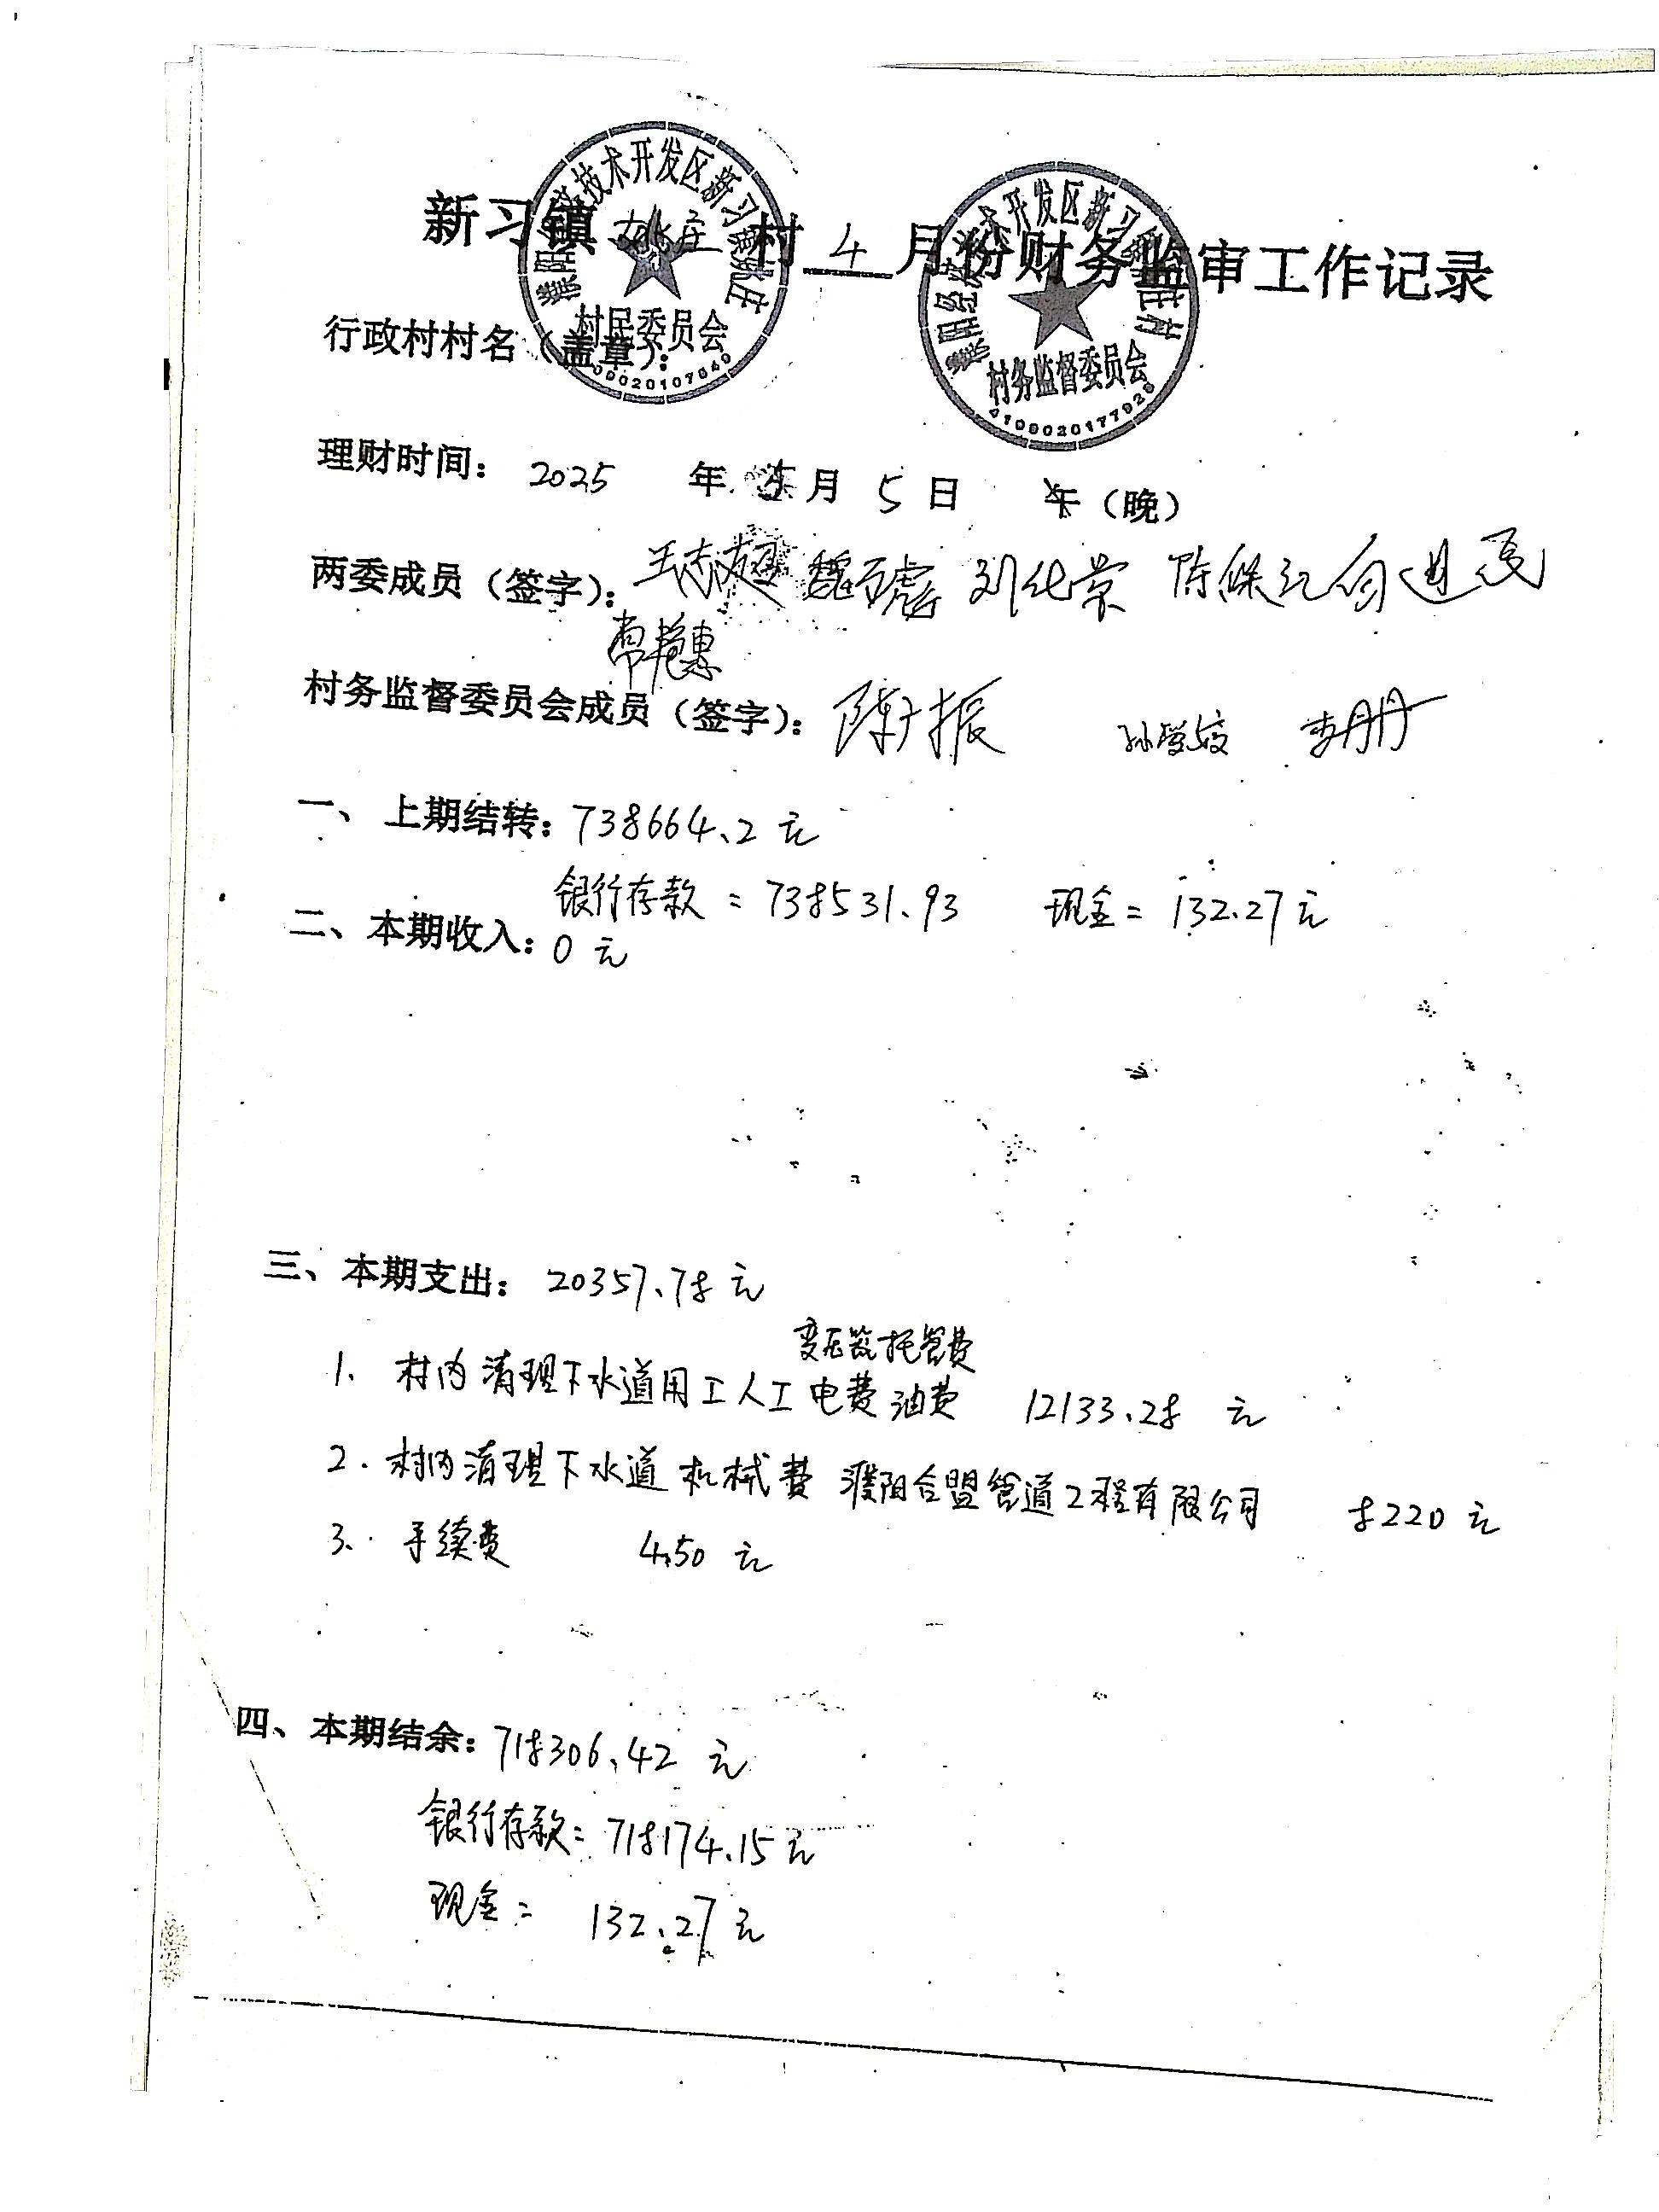 新习镇 姚庄 村 4 月份财务监审工作记录
行政村村名（盖章）：
村民委员会
村务监督委员会
4109020177928
理财时间： 2025 年 5 月 5 日 午（晚）
两委成员（签字）： 王志超 魏 刘化常 陈保江
常艳惠
村务监督委员会成员（签字）： 陈广振 李丹丹
一、 上期结转：738664.2 元
银行存款 = 738531.93 现金 = 132.27元
二、本期收入：0 元
三、本期支出： 20357.78 元
变压器托管费
1、村内清理下水道用工人工电费油费 12133.28 元
2. 村内清理下水道机械费 濮阳合盟管道工程有限公司 8220 元
3、手续费 4.50 元
四、本期结余：718306.42 元
银行存款：718174.15元
现金： 132.27 元